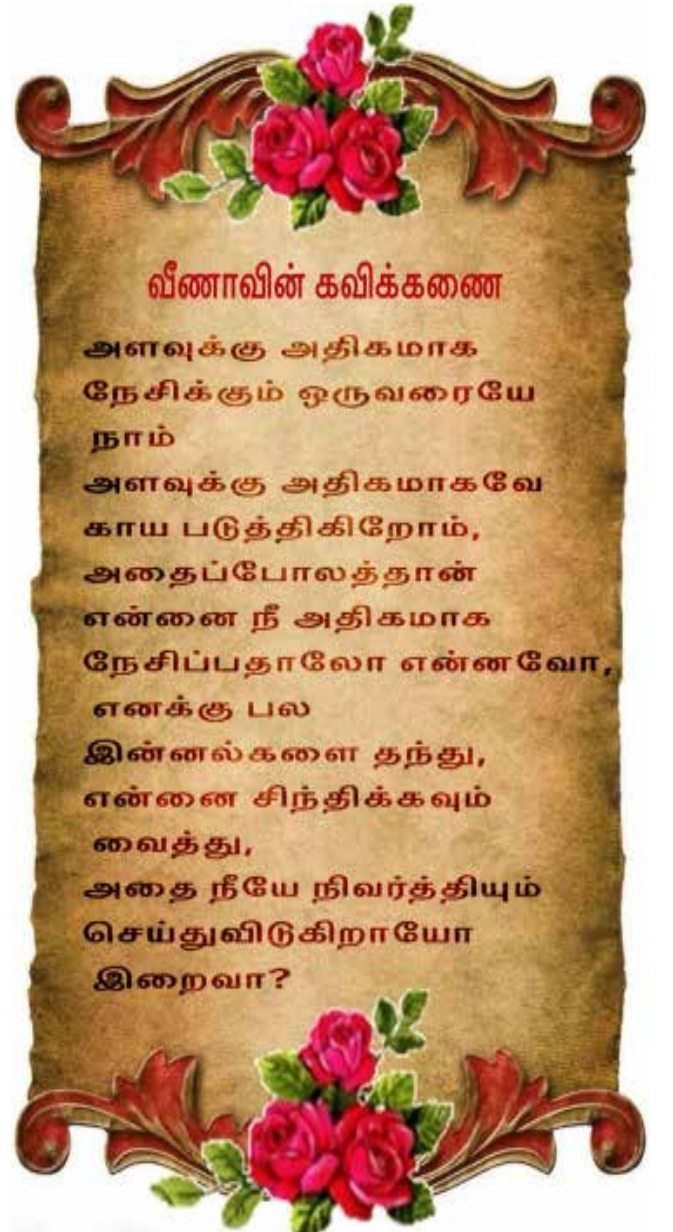 வீணாவின் கவிக்கணை
அளவுக்கு அதிகமாக
நேசிக்கும் ஒருவரையே
நாம்
அளவுக்கு அதிகமாகவே
காய படுத்திகிறோம்,
அதைப்போலத்தான்
என்னை நீ அதிகமாக
நேசிப்பதாலோ என்னவோ,
எனக்கு பல
இன்னல்களை தந்து,
என்னை சிந்திக்கவும்
வைத்து,
அதை நீயே நிவர்த்தியும்
செய்துவிடுகிறாயோ
இறைவா?